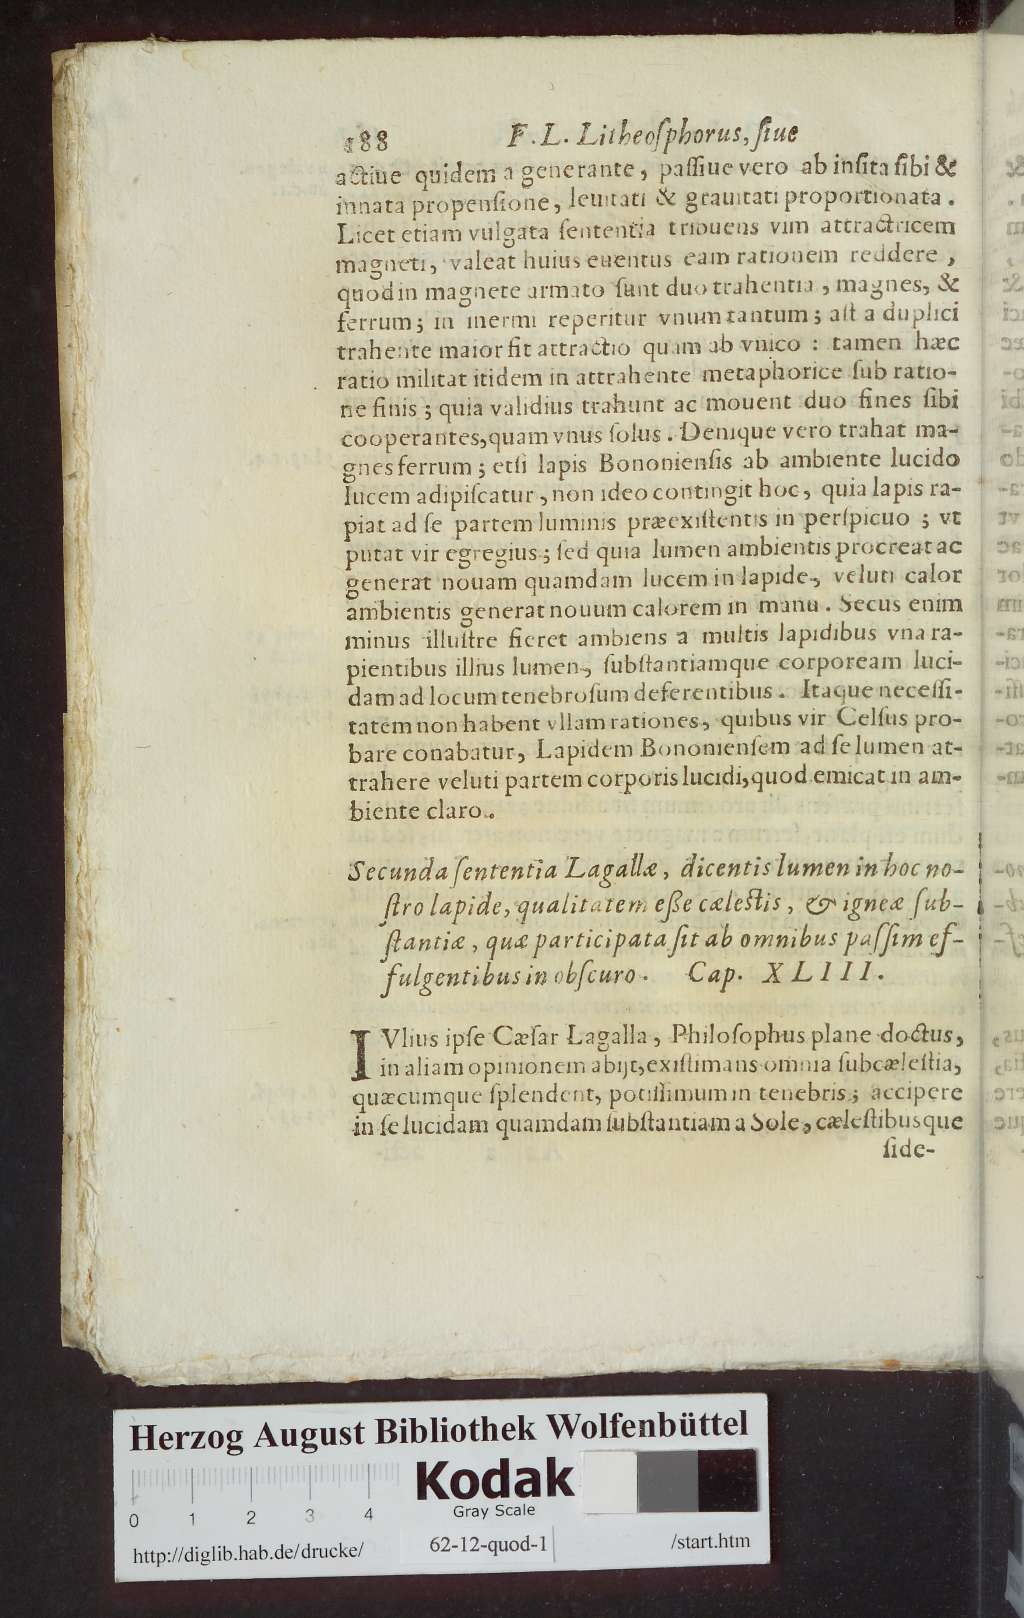 188 F. L. Litheoſphorus, ſiue
actiue quidem a generante, paſſiue vero ab inſita ſibi &
innata propenſione, leuitati & grauitati proportionata.
Licet etiam vulgata ſententia tribuens vim attractricem
magneti, valeat huius euentus eam rationem reddere,
quod in magnete armato ſunt duo trahentia, magnes, &
ferrum; in inermi reperitur vnum tantum; aſt a duplici
trahente maior fit attractio quam ab vnico: tamen hæc
ratio militat itidem in attrahente metaphorice ſub ratio-
ne finis; quia validius trahunt ac mouent duo fines ſibi
cooperantes, quam vnus ſolus. Denique vero trahat ma-
gnes ferrum; etſi lapis Bononienſis ab ambiente lucido
lucem adipiſcatur, non ideo contingit hoc, quia lapis ra-
piat ad ſe partem luminis præexiſtentis in perſpicuo; vt
putat vir egregius; ſed quia lumen ambientis procreat ac
generat nouam quamdam lucem in lapide, veluti calor
ambientis generat nouum calorem in manu. Secus enim
minus illuſtre fieret ambiens a multis lapidibus vna ra-
pientibus illius lumen, ſubſtantiamque corpoream luci-
dam ad locum tenebroſum deferentibus. Itaque neceſſi-
tatem non habent vllam rationes, quibus vir Celſus pro-
bare conabatur, Lapidem Bononienſem ad ſe lumen at-
trahere veluti partem corporis lucidi, quod emicat in am-
biente claro.
Secunda ſententia Lagallæ, dicentis lumen in hoc no-
ſtro lapide, qualitatem eſſe cæleſtis, & igneæ ſub-
ſtantiæ, quæ participata ſit ab omnibus paſſim ef-
fulgentibus in obſcuro. Cap. XLIII.
IVlius ipſe Cæſar Lagalla, Philoſophus plane doctus,
in aliam opinionem abijt, exiſtimans omnia ſubcæleſtia,
quæcumque ſplendent, potiſſimum in tenebris; accipere
in ſe lucidam quamdam ſubſtantiam a Sole, cæleſtibusque
ſide-
Herzog August Bibliothek Wolfenbüttel
Kodak
Gray Scale
0 1 2 3 4
http://diglib.hab.de/drucke/ 62-12-quod-1 /start.htm